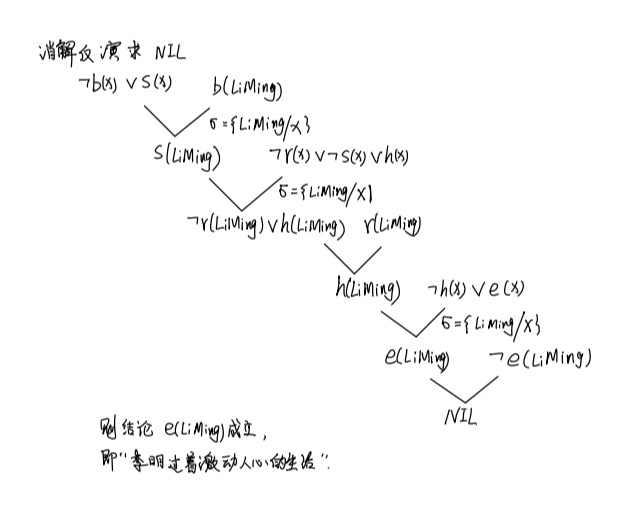 消解反演求 NIL
¬b(x) ∨ S(x) b(LiMing)
σ={LiMing/x}
S(LiMing) ¬r(x)∨¬S(x)∨h(x)
σ={LiMing/x}
¬r(LiMing)∨h(LiMing) r(LiMing)
h(LiMing) ¬h(x)∨e(x)
σ={LiMing/x}
e(LiMing) ¬e(LiMing)
NIL
则结论 e(LiMing)成立，
即“李明过着激动人心的生活”.